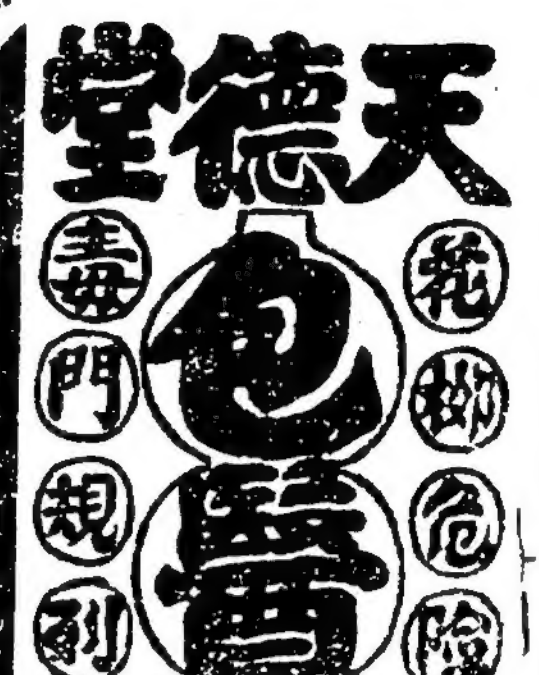 天德堂
花柳危險
包醫
毒門規列